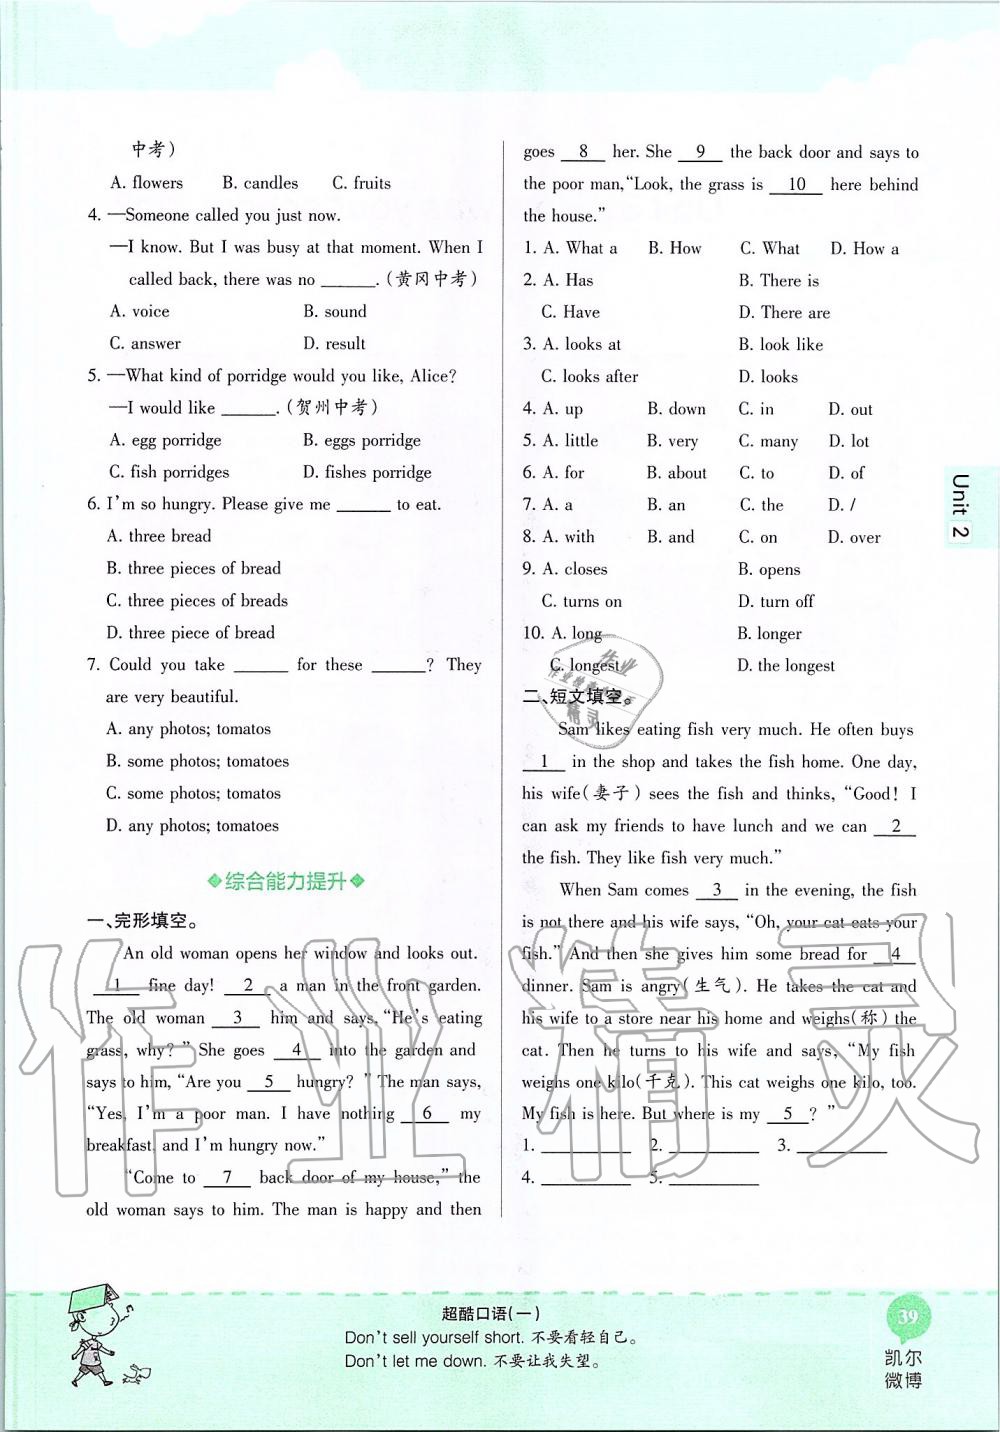 中考)
A. flowers B. candles C. fruits
4. —Someone called you just now.
—I know. But I was busy at that moment. When I
called back, there was no ______. (黄冈中考)
A. voice B. sound
C. answer D. result
5. —What kind of porridge would you like, Alice?
—I would like ______. (贺州中考)
A. egg porridge B. eggs porridge
C. fish porridges D. fishes porridge
6. I'm so hungry. Please give me ______ to eat.
A. three bread
B. three pieces of bread
C. three pieces of breads
D. three piece of bread
7. Could you take ______ for these ______? They
are very beautiful.
A. any photos; tomatos
B. some photos; tomatoes
C. some photos; tomatos
D. any photos; tomatoes
综合能力提升
一、完形填空。
An old woman opens her window and looks out.
1 fine day! 2 a man in the front garden.
The old woman 3 him and says, "He's eating
grass, why?" She goes 4 into the garden and
says to him, "Are you 5 hungry?" The man says,
"Yes, I'm a poor man. I have nothing 6 my
breakfast, and I'm hungry now."
"Come to 7 back door of my house," the
old woman says to him. The man is happy and then
goes 8 her. She 9 the back door and says to
the poor man, "Look, the grass is 10 here behind
the house."
1. A. What a B. How C. What D. How a
2. A. Has B. There is
C. Have D. There are
3. A. looks at B. look like
C. looks after D. looks
4. A. up B. down C. in D. out
5. A. little B. very C. many D. lot
6. A. for B. about C. to D. of
7. A. a B. an C. the D. /
8. A. with B. and C. on D. over
9. A. closes B. opens
C. turns on D. turn off
10. A. long B. longer
C. longest D. the longest
二、短文填空。
Sam likes eating fish very much. He often buys
1 in the shop and takes the fish home. One day,
his wife(妻子) sees the fish and thinks, "Good! I
can ask my friends to have lunch and we can 2
the fish. They like fish very much."
When Sam comes 3 in the evening, the fish
is not there and his wife says, "Oh, your cat eats your
fish." And then she gives him some bread for 4
dinner. Sam is angry(生气). He takes the cat and
his wife to a store near his home and weighs(称) the
cat. Then he turns to his wife and says, "My fish
weighs one kilo(千克). This cat weighs one kilo, too.
My fish is here. But where is my 5?"
1. ______ 2. ______ 3. ______
4. ______ 5. ______
Unit 2
作业精灵
超酷口语(一)
Don't sell yourself short. 不要看轻自己。
Don't let me down. 不要让我失望。
39
凯尔
微博